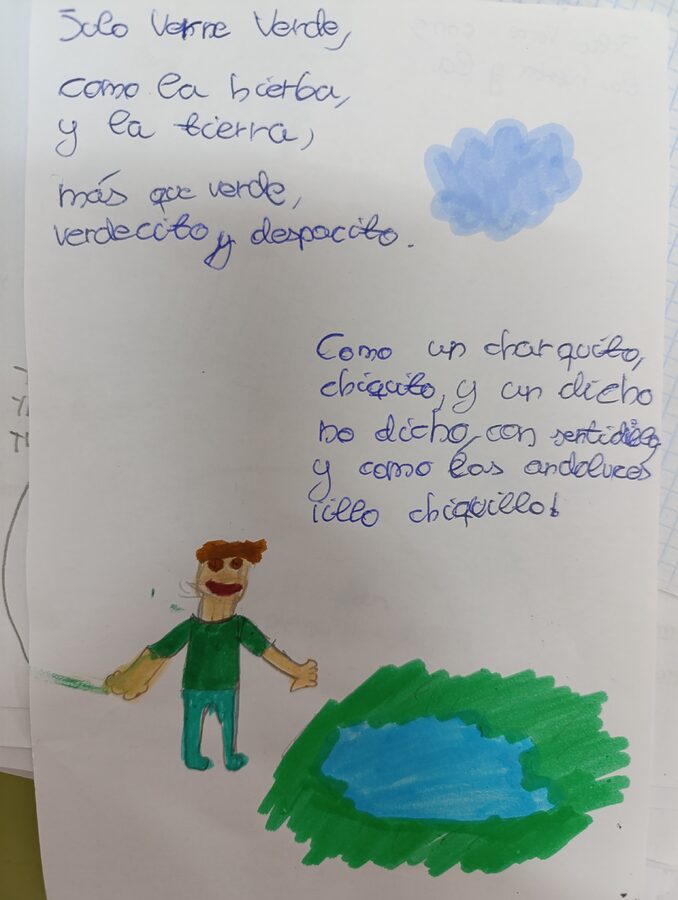 Solo Verne Verde,
como la hierba,
y la tierra,
más que verde,
verdecito y despacito.
Como un charquito,
chiquito, y un dicho
no dicho, con sentidillo
y como los andaluces
¡illo chiquillo!